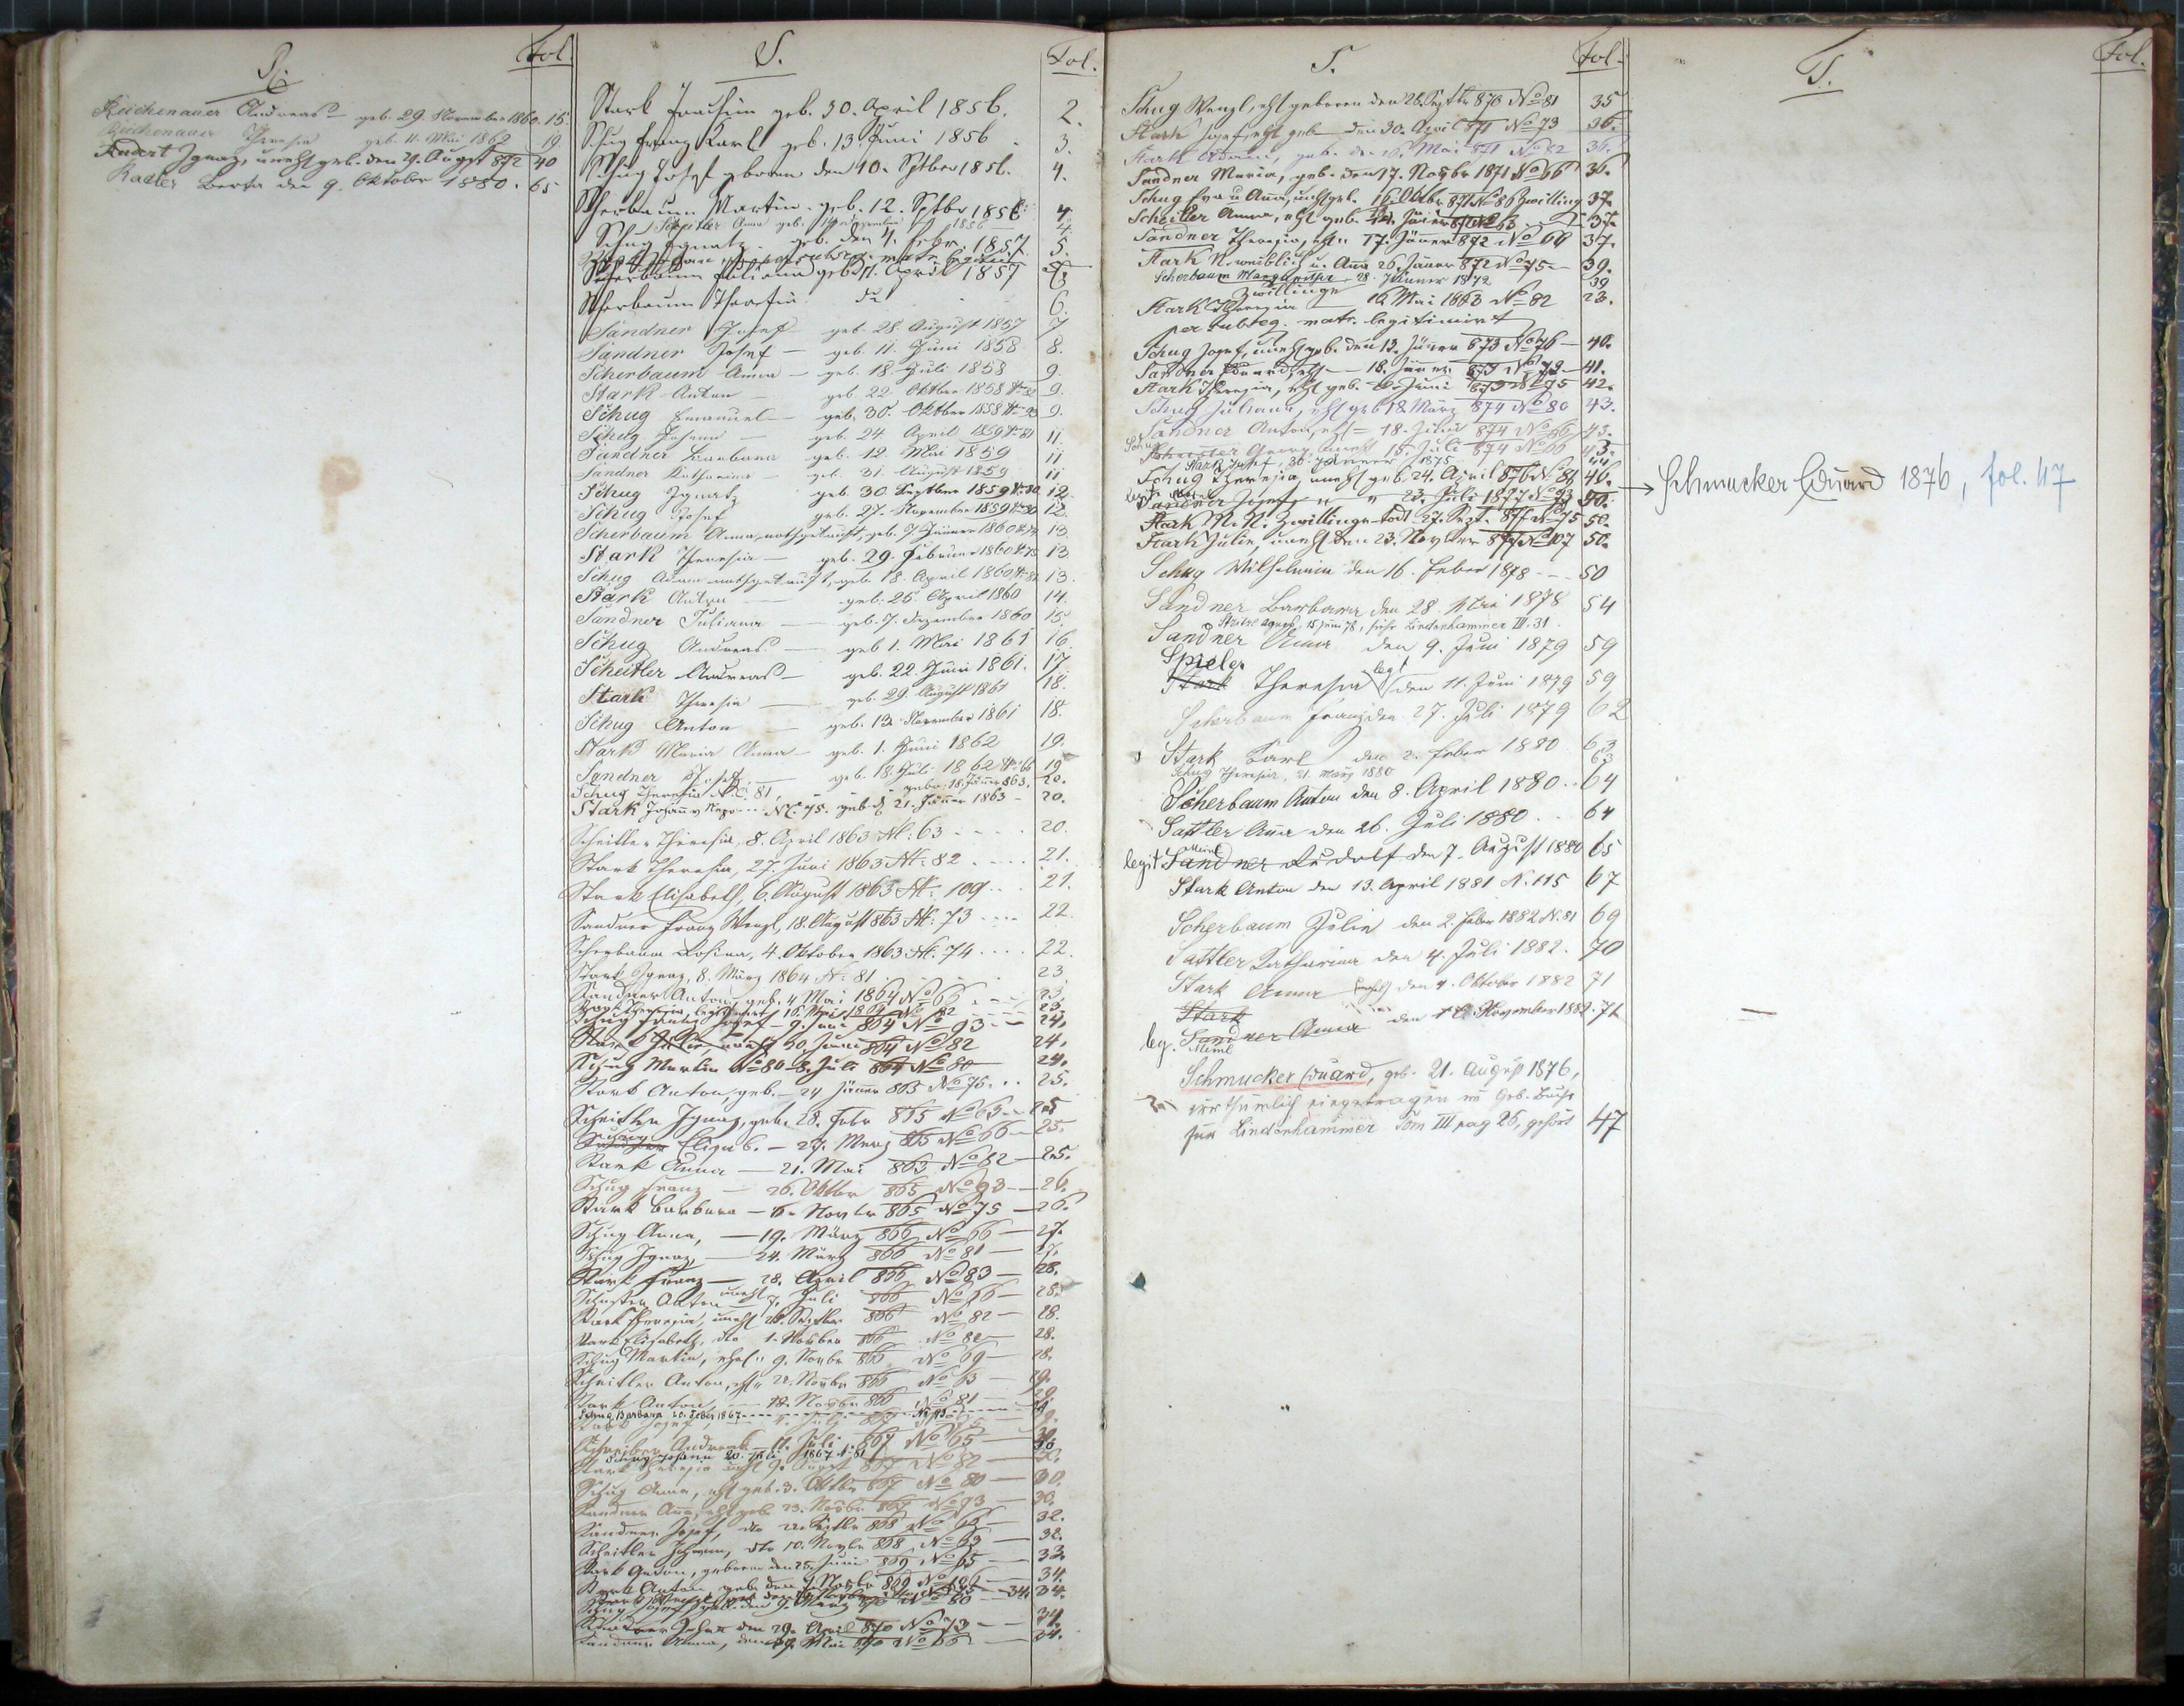 R.
Fol.
Reichenauer Andreas — geb. 29. November 1860. 15.
Reichenauer Theresia geb. 11. Mai 1862 19
Ignaz, unehl geb. den 29. August 872 40
Kadler Berta den 9. Oktober 1880. 65
S.
Fol.
Stark Joachim geb. 30. April 1856. 2.
Schug Franz Karl geb. 13. Juni 1856 3.
Schug Josef geboren den 10. Sptber 1856. 4.
Scherbaum Martin. geb. 12. Sptbr 1856. 4.
Scheitler Anna geb. 1856 4.
Schug Ignatz. geb. den 4. Febr. 1857. 5.
Scherbaum Juliana geb. 11. April 1857
Scherbaum Theresia do 6.
Sandner Josef geb. 28. August 1857 7
Sandner Josef — geb. 11. Juni 1858 8.
Scherbaum Anna — geb. 18. Juli 1858 9.
Stark Anton — geb. 22. Oktber 1858 9.
Schug Emanuel — geb. 30. Oktber 1858 9.
Schug Johann — geb. 24. April 1859 N 81 11.
Sandner Barbara geb. 12. Mai 1859 11
Sandner Katharina — geb. 31. August 1859 11
Schug Ignatz geb. 30. Septber 1859 N 80 12.
Schug Josef geb. 27. November 1859 12.
Scherbaum Anna, nothgetauft, geb. 9. Jänner 1860 13.
Stark Theresia — geb. 29. Februar 1860 13
Schug Adam nothgetauft, geb. 18. April 1860 13.
Stark Anton — geb. 25. April 1860 14.
Sandner Juliana — geb. 7. Dezember 1860 15.
Schug Andreas — geb 1. Mai 1861 16.
Scheitler Andreas — geb. 22. Juni 1861. 17
Stark Theresia — geb. 29. August 1861 18.
Schug Anton — geb. 13. November 1861 18.
Stark Maria Anna — geb. 1. Juni 1862 19.
Sandner Josef — geb. 18. Juli 1862 N 66 19
Schug Theresia N.C. 81, gebor. 18. Jänner 863. 20.
Stark Johann Nepo... NC. 75. geb. d. 21. Jänner 1863 – 20.
Scheitler Theresia, 8. April 1863 N. 63 . . . . 20.
Stark Theresia, 27. Juni 1863 N. 82 . . . . 21.
Stark Elisabeth, 6. August 1863 N. 109 . . . 21.
Sandner Franz Wenzl, 18. August 863 N. 73 . . . . 22.
Scherbaum Rosina, 4. Oktober 1863 N. 74 . . . . 22.
Stark Ignaz, 8. März 1864, N. 81 . . . . 23
Sandner Anton, geb. 4 Mai 1864 No 66 . . . 23.
Stark Theresia, legitimirt, 16. Mai 1863 No 82 23
Josef – 9. Juni 864 No 93 – – 24.
Stark 30. Juni 864 No 82 24.
Schug Martin No 80 8. Juli 864 No 80 24.
Stark Anton, geb. – 24 Jänner 865 No 75. . . 25.
Scheitler Ignaz, geb. 28. Febr 865 No 63 – – 25
Schug Elisab. – 27. März 865 No 66 – 25.
Stark Anna — 21. Mai 863 No 82 – 25.
Schug Franz — 26. Oktbr 865 No 93 – – 26.
Stark Barbara — Novbr 865 No 75 – 26.
Schug Anna, — 19. März 866 No 66 – 27.
Schug Ignaz, — 24. März 866 No 81 – 27.
Stark Franz — 28. April 866 No 83 – 28.
Schuster Anton unehl 7. Juli 866 No 66 – 28.
Stark Theresia, unehl 28. Septbr 866 No 82 – 28.
Stark Elisabeth, do 1. Novber 866 No 82 – 28.
Schug Martin, ehel. 9. Novbr 866 No 69 – 28.
Scheitler Anton, ehl. 22. Novbr 866 No 63 – 29.
Stark Anton, 18. Novbr 866 No 81 – 29
Schug Barbara 20. Feber 1867 N 93 29
Stark Josef Juli 867
Schreiber Andreas — 11. Juli 867 No 65 30.
Schug Johann 20. Juli 1867 N. 81 30
Stark Theresia unehl 867 No 82 — 30.
Schug Anna, ehl geb. 3. Oktbr 867 No 80 — 30.
Sandner Anna, ehl geb. 23. Novbr 867 No 73 — 30.
Sandner Josef, do 22. Septbr 868 32.
Scheitler Johann, do 10. Novbr 868 No 63 — 32.
Stark Anton, geboren den 25. Juni 869 No 65 — 33.
Stark Anton geb. den 869 No 106 — 34.
34. 34.
Schug Josef geb. den 9. März 870 No 80
Sandner Johann den 29. April 870 No 73 — 34.
Sandner Anna, den Mai 870 No 66 — 34.
S.
Fol.
Schug Wenzl, ehl geboren den 28. Septbr 870 No 81 35
Stark Josef, ehl geb den 30. April 871 No 73 36.
Stark Adam, geb. den 16. Mai 871 No 82 36.
Sandner Maria, geb. den 17. Novbr 1871 No 66 36.
Schug Eva u Anna, unehl geb. 16. Oktbr 871 No 86 Zwilling 37.
Scheitler Anna, ehl geb. Jäner 872 No 63 37.
Sandner Theresia, ehl. 17. Jäner 872 No 69 37.
Stark N. weiblich u. Anna 26. Jänner 872 No 75 – 39.
Scherbaum Margaretha 28. Jänner 1872 39
Zwillinge
Stark Theresia 16 Mai 1863 No 82 23.
per subseq. matr. legitimirt
Schug Josef, unehl geb. den 13. Jänner 873 No 76 – 40.
Sandner Eduard, ehl – 18. Jänner 873 No 73 – 41.
Stark Theresia, ehl geb. 8. Juni 873 No 75 42.
Schug Juliana, ehl geb 18. März 874 No 80 43.
Sandner Anton, ehl = 18. Juni 874 No 66 43.
Schug
Schuster Georg, unehl 15. Juli 874 No 66 43.
Stark Josef, 30. Jänner 1875 44
Schug Theresia, unehl geb. 24. April 876 No 81 46.
Sandner Josef " " 23. Juli 1877 No 73 50.
Stark N. N. Zwillinge todt 27. Sept. 877 No 75 50.
Stark Julie, unehl den 23. Novber 877 No 107 50.
Schug Wilhelmine den 16. Feber 1878 – – 50
Sandner Barbara den 28. Mai 1878 54
Agnes, 15 Juni 78, siehe Lindenhammer III. 31.
Sandner Anna den 9. Juni 1879 59
Spieler
Stark Theresia legt den 11. Juni 1879 59
Scherbaum Franz den 27. Juli 1879 62
Stark Karl den 2. Feber 1880 63
Schug Theresia, 21. März 1880 63
Scherbaum Anton den 8. April 1880 . . 64
Sattler Anna den 26. Juli 1880 . . 64
legit Sandner Rudolf den 7. August 1880 65
Stark Anton den 13. April 1881 N. 115 67
Scherbaum Julie den 2. Feber 1882 N. 81 69
Sattler Katharina den 4. Juli 1882. 70
Stark Anna den 4. Oktober 1882 71
Stark
leg. Sandner Anna den November 1882. 72
Schmucker Eduard, geb. 21. August 1876,
irrthümlich eingetragen im Geb. Buche
für Lindenhammer Tom III pag 25, gehört 47
T.
Fol.
→ Schmucker Eduard 1876, fol. 47